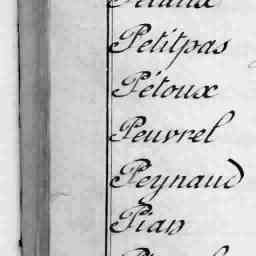 Petitpas
Pétoux
Peuvrel
Peynaud
Pian